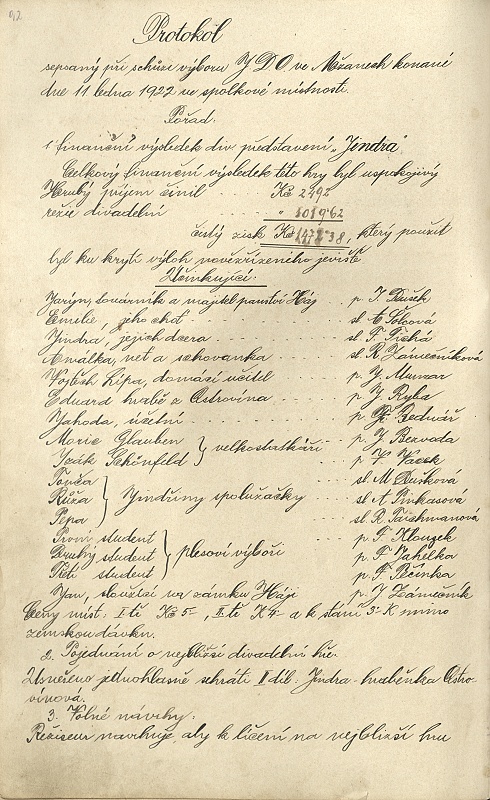 92
Protokol
sepsaný při schůzi výboru J D O ve Mžanech konané
dne 11. ledna 1922 ve spolkové místnosti.
Pořad:
1. finanční výsledek div. představení „Jindra“
Celkový finanční výsledek této hry byl uspokojivý
Hrubý příjem činil Kč 2492
režie divadelní . . . . . . " 1019·62
čistý zisk Kč 1472·38, který použit
byl ku krytí výloh novězřízeného jeviště
Účinkující:
továrník a majitel panství Háj p. J. Dušek
Emilie, jeho choť . . . sl. A. Solcová
Jindra, jejich dcera . . . sl. F. Tichá
Amálka, neť a schovanka . . . sl. R. Zámečníková
Vojtěch Lípa, domácí učitel . . . p. J. Mumar
Eduard hrabě z Ostrovína . . . p. J. Ryba
Jahoda, účetní . . . p. Fr. Bednář
Moric Glauben } velkostatkáři . . . p. J. Bezvoda
Izák Schönfeld p. V. Vacek
Tonča sl. M. Dušková
Růža } Jindřiny spolužačky . . . sl. A. Pinkasová
Pepa sl. R. Taichmanová
První student p. F. Klouzek
Druhý student } plesoví výboři p. F. Jahelka
Třetí student p. F. Pečinka
Jan, sloužící na zámku Háji p. J. Zámečník
Ceny míst: I. tř. Kč 5·-, II. tř. K 4·- a k stání 3·- K mimo
zemskou dávku.
2. Pojednání o nejbližší divadelní hře.
Usneseno jednohlasně sehráti II díl: Jindra-hraběnka Ostro-
vínová.
3. Volné návrhy:
Režiseur navrhuje, aby k líčení na nejbližší hru